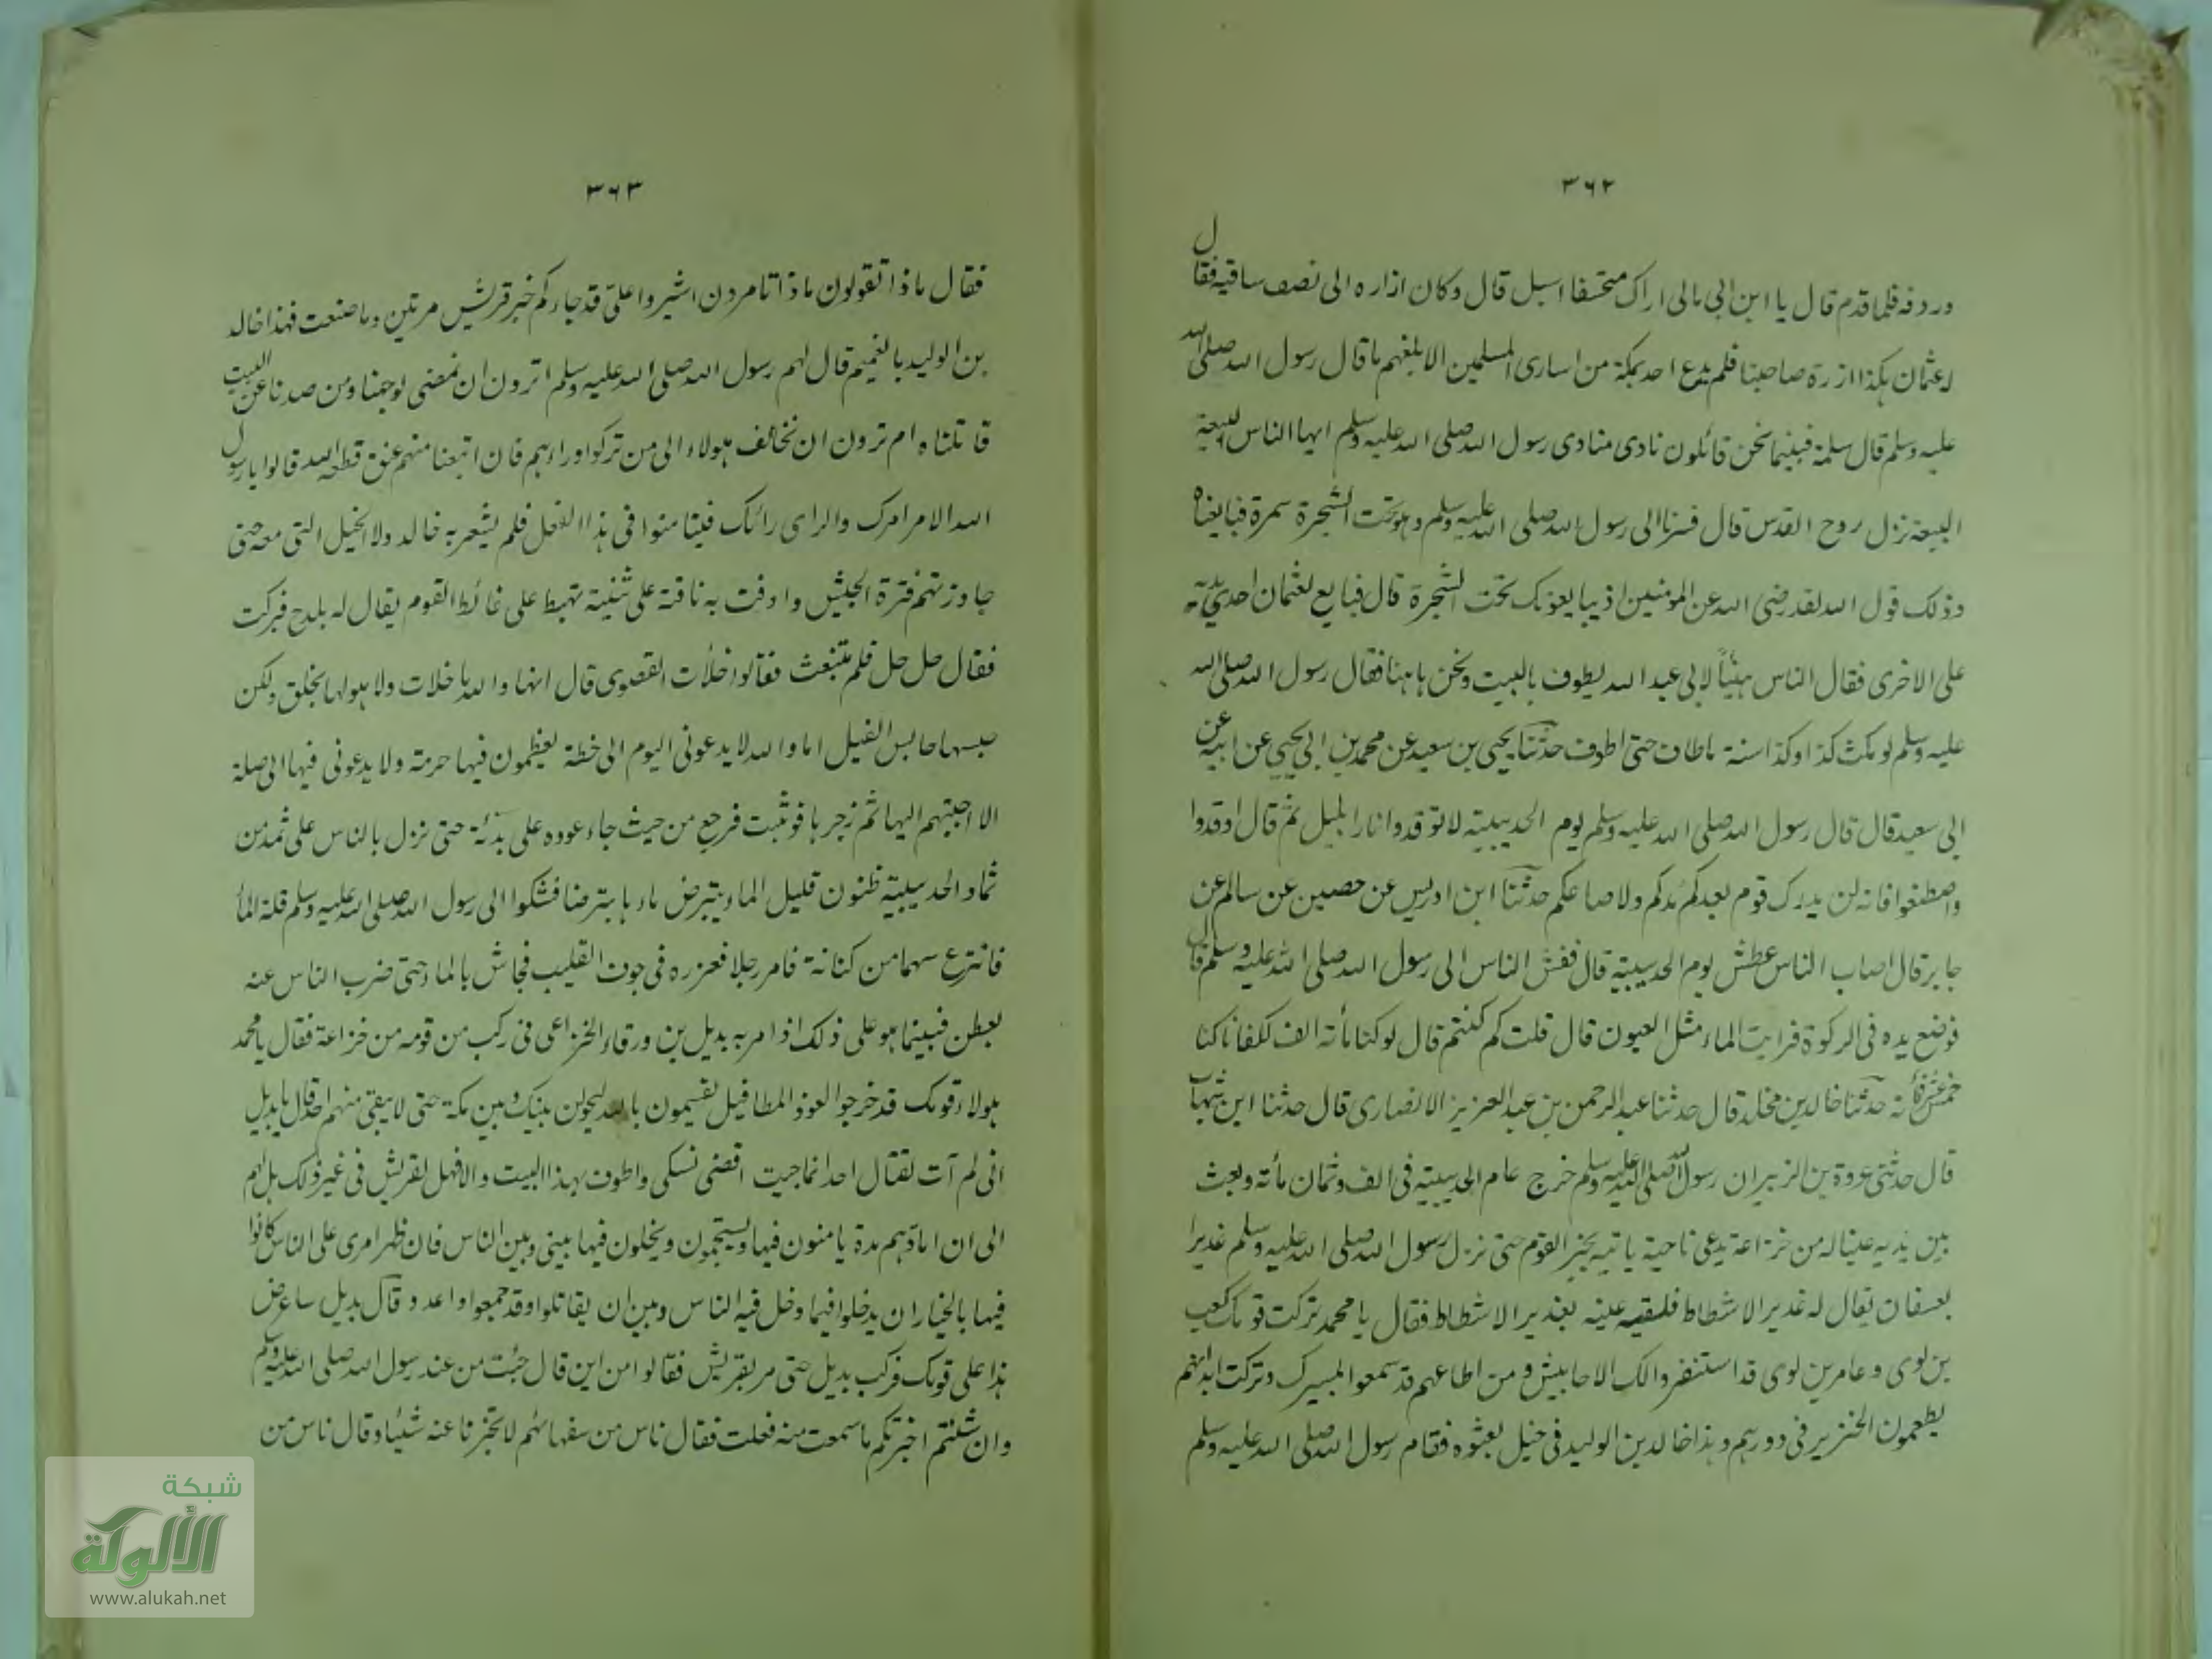 ٣٦٢
وردفه فلما قدم قال يا ابن ابى مالى اراك متحسفا اسبل قال وكان ازاره الى نصف ساقيه فقال
له عثمان هكذا ازرة صاحبنا فلم يدع احد بمكة من اسارى المسلمين الا بلغهم ما قال رسول الله صلى الله
عليه وسلم قال سلمة فبينما نحن قائلون نادى منادى رسول الله صلى الله عليه وسلم ايها الناس البيعة
البيعة نزل روح القدس قال فسرنا الى رسول الله صلى الله عليه وسلم وهو تحت الشجرة سمرة فبايعناه
وذلك قول الله لقد رضى الله عن المؤمنين اذ يبايعونك تحت الشجرة قال فبايع لعثمان احدى يديه
على الاخرى فقال الناس هنيئاً لابى عبد الله يطوف بالبيت ونحن هاهنا فقال رسول الله صلى الله
عليه وسلم لو مكث كذا وكذا سنة ما طاف حتى اطوف حدثنا يحيى بن سعيد عن محمد بن ابى يحيى عن ابيه عن
ابى سعيد قال قال رسول الله صلى الله عليه وسلم يوم الحديبية لا توقدوا نارا بليل ثم قال اوقدوا
واصطنعوا فانه لن يدرك قوم بعدكم مدكم ولا صاعكم حدثنا ابن ادريس عن حصين عن سالم عن
جابر قال اصاب الناس عطش يوم الحديبية قال فهش الناس الى رسول الله صلى الله عليه وسلم قال
فوضع يده فى الركوة فرايت الماء مثل العيون قال قلت كم كنتم قال لو كنا مأته الف لكفانا كنا
خمس عشرة مأئة حدثنا خالد بن مخلد قال حدثنا عبد الرحمن بن عبد العزيز الانصارى قال حدثنا ابن شهاب
قال حدثنى عروة بن الزبير ان رسول الله صلى الله عليه وسلم خرج عام الحديبية فى الف وثمان مأئة وبعث
بين يديه عينا له من خزاعة يدعى ناجية ياتيه بخبر القوم حتى نزل رسول الله صلى الله عليه وسلم غديرا
بعسفان يقال له غدير الاشطاط فلقيه عينه بغدير الاشطاط فقال يا محمد تركت قومك كعب
بن لوى وعامر بن لوى قد استنفروا لك الاحابيش و من اطاعهم قد سمعوا بمسيرك وتركت عبدانهم
يطعمون الخنزير فى دورهم وهذا خالد بن الوليد فى خيل بعثوه فقام رسول الله صلى الله عليه وسلم
٣٦٣
فقال ماذا تقولون ماذا تامرون اشيروا علىّ قد جاءكم خبر قريش مرتين وما صنعت فهذا خالد
بن الوليد بالغميم قال لهم رسول الله صلى الله عليه وسلم اترون ان نمضى لوجهنا ومن صدنا عن البيت
قاتلناه ام ترون ان نخالف هولاء الى من تركوا وراءهم فان اتبعنا منهم عنق قطعه الله قالوا يا رسول
الله الامر امرك والراى رائك فيتامنوا فى هذا الفعل فلم يشعر به خالد ولا الخيل التى معه حتى
جاوز بهم قترة الجيش و اوفت به ناقته على ثنية تهبط على غائط القوم يقال له بلدح فبركت
فقال حل حل فلم تنبعث فقالوا خلأت القصوى قال انها والله ما خلات ولا هو لها بخلق ولكن
حبسها حابس الفيل اما والله لا يدعونى اليوم الى خطة يعظمون فيها حرمة ولا يدعونى فيها الى صلة
الا اجبتهم اليها ثم زجرها فوثبت فرجع من حيث جاء عوده على بدئه حتى نزل بالناس على ثمد من
ثماد الحديبية ظنون قليل الماء يتبرض ماءها تبرضا فشكوا الى رسول الله صلى الله عليه وسلم قلة الماء
فانتزع سهما من كنانته فامر رجلا فغرزه فى جوف القليب فجاش بالماء حتى ضرب الناس عنه
بعطن فبينما هو على ذلك اذ امر به بديل بن ورقاء الخزاعى فى ركب من قومه من خزاعة فقال يا محمد
هولاء قومك قد خرجوا العوذ المطافيل يقسمون بالله ليحولن بينك وبين مكة حتى لا يبقى منهم احد قال يا بديل
انى لم آت لقتال احد انما جيت اقضى نسكى واطوف بهذا البيت والا فهل لقريش فى غير ذلك هل لهم
الى ان امادهم مدة يامنون فيها ويستجمون ويخلون فيها بينى وبين الناس فان ظهر امرى على الناس كانوا
فيها بالخيار ان يدخلوا فيما دخل فيه الناس وبين ان يقاتلوا وقد جمعوا واعدوا قال بديل ساعرض
هذا على قومك فركب بديل حتى مر بقريش فقالوا من اين قال جئت من عند رسول الله صلى الله عليه وسلم
وان شئتم اخبرتكم ما سمعت منه فعلت فقال ناس من سفهائهم لا تخبرنا عنه شيئا وقال ناس من
شبكة
الألوكة
www.alukah.net